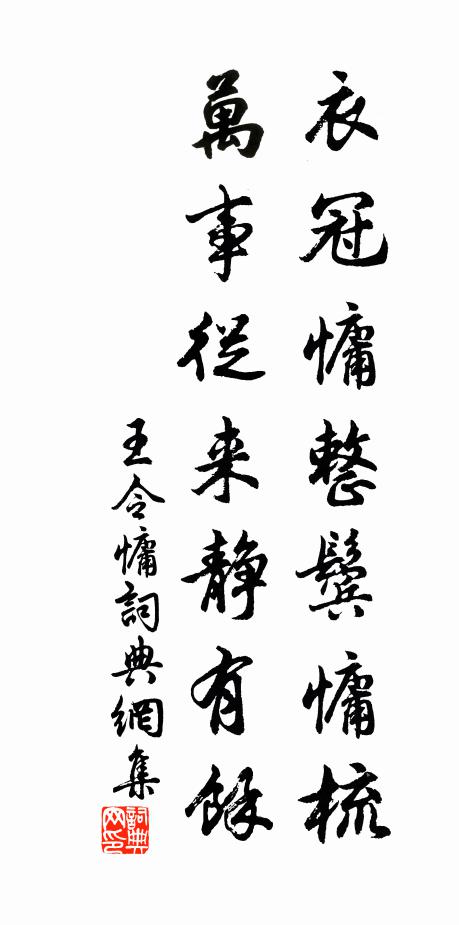 衣冠慵整鬢慵梳
萬事從来静有餘
王令慵詞典網集
詞典网印